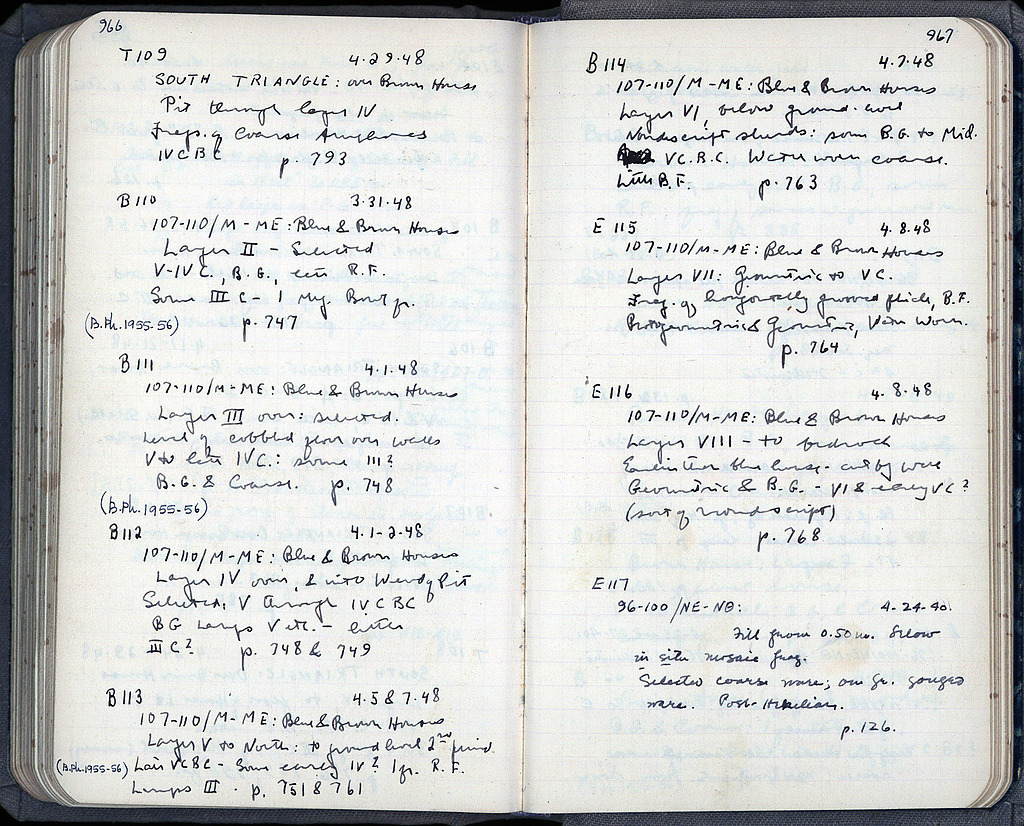 966
T 109 4·29·48
SOUTH TRIANGLE: over Brown House
Pit through layer IV
Frags. of Coarse Amphoras
IV C BC p. 793
B 110 3·31·48
107-110/M-ME: Blue & Brown Houses
Layer II - Selected
V-IV C, B.G., little R.F.
Some III C - 1 Meg. Bowl fr.
(B.Ph. 1955-56) p. 747
B 111 4·1·48
107-110/M-ME: Blue & Brown Houses
Layer III over: selected.
Level of cobbled floor over walls
V to late IV C.: some III?
B.G. & Coarse. p. 748
(B.Ph. 1955-56)
B 112 4·1-2·48
107-110/M-ME: Blue & Brown Houses
Layer IV over, & into Wendy Pit
Selected, V through IV C BC
BG Lamps V etc. -
III C? p. 748 & 749
B 113 4·5 & 7·48
107-110/M-ME: Blue & Brown Houses
Layer V to North: to ground level 2nd period.
(B.Ph. 1955-56) Late V C BC - Some early IV? 1 fr. R.F.
Lamps III · p. 751 & 761
967
B 114 4·7·48
107-110/M-ME: Blue & Brown Houses
Layer VI, below ground level
Nondescript sherds: some B.G. to Mid.
V C. B.C. Water worn coarse.
Little B.F. p. 763
E 115 4·8·48
107-110/M-ME: Blue & Brown Houses
Layer VII: Geometric to V C.
Frag. of horizontally grooved, B.F.
Protogeometric & Geometric, Water Worn.
p. 764
E 116 4·8·48
107-110/M-ME: Blue & Brown Houses
Layer VIII - to bedrock
Earlier than blue house - cut by wall
Geometric & B.G. - VI & early V C?
(sort of nondescript)
p. 768
E 117
96-100/NE-NΘ: 4-24-40.
Fill from 0.50 m. below
in situ mosaic frag.
Selected coarse ware; one fr. gouged
ware. Post-Herulian.
p. 126.